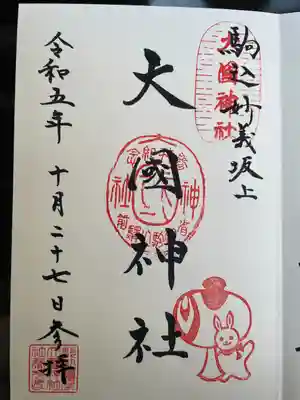 駒込妙義坂上
大國神社
大国神社
令和五年 十月二十七日参拝